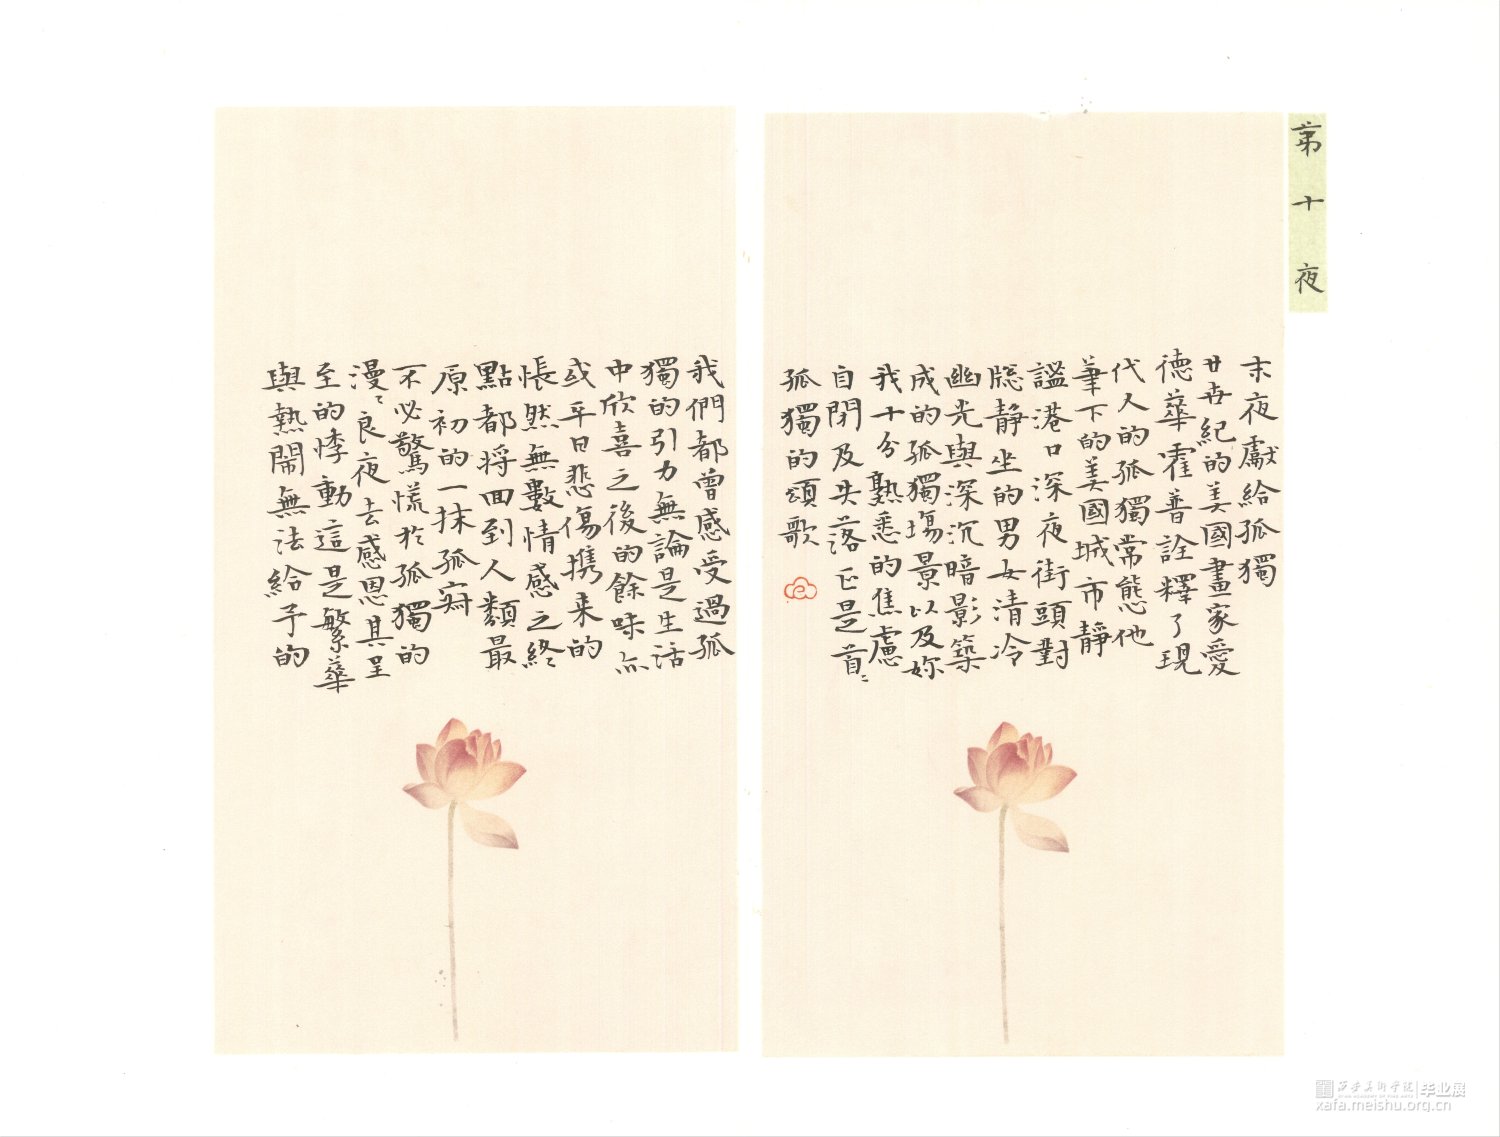 第十夜
末夜獻給孤獨
廿世紀的美國畫家愛
德華霍普詮釋了現
代人的孤獨常態他
筆下的美國城市靜
謐港口深夜街頭對
牕靜坐的男女清冷
幽光與深沉暗影築
成的孤獨場景以及妳
我十分熟悉的焦慮
自閉及失落正是首〻
孤獨的頌歌
我們都曾感受過孤
獨的引力無論是生活
中欣喜之後的餘味亦
或平日悲傷攜來的
悵然無數情感之終
點都將回到人類最
原初的一抹孤寂
不必驚慌於孤獨的
漫〻良夜去感恩其呈
至的悸動這是繁華
與熱鬧無法給予的
西安美術學院 毕业展
XI'AN ACADEMY OF FINE ARTS
xafa.meishu.org.cn